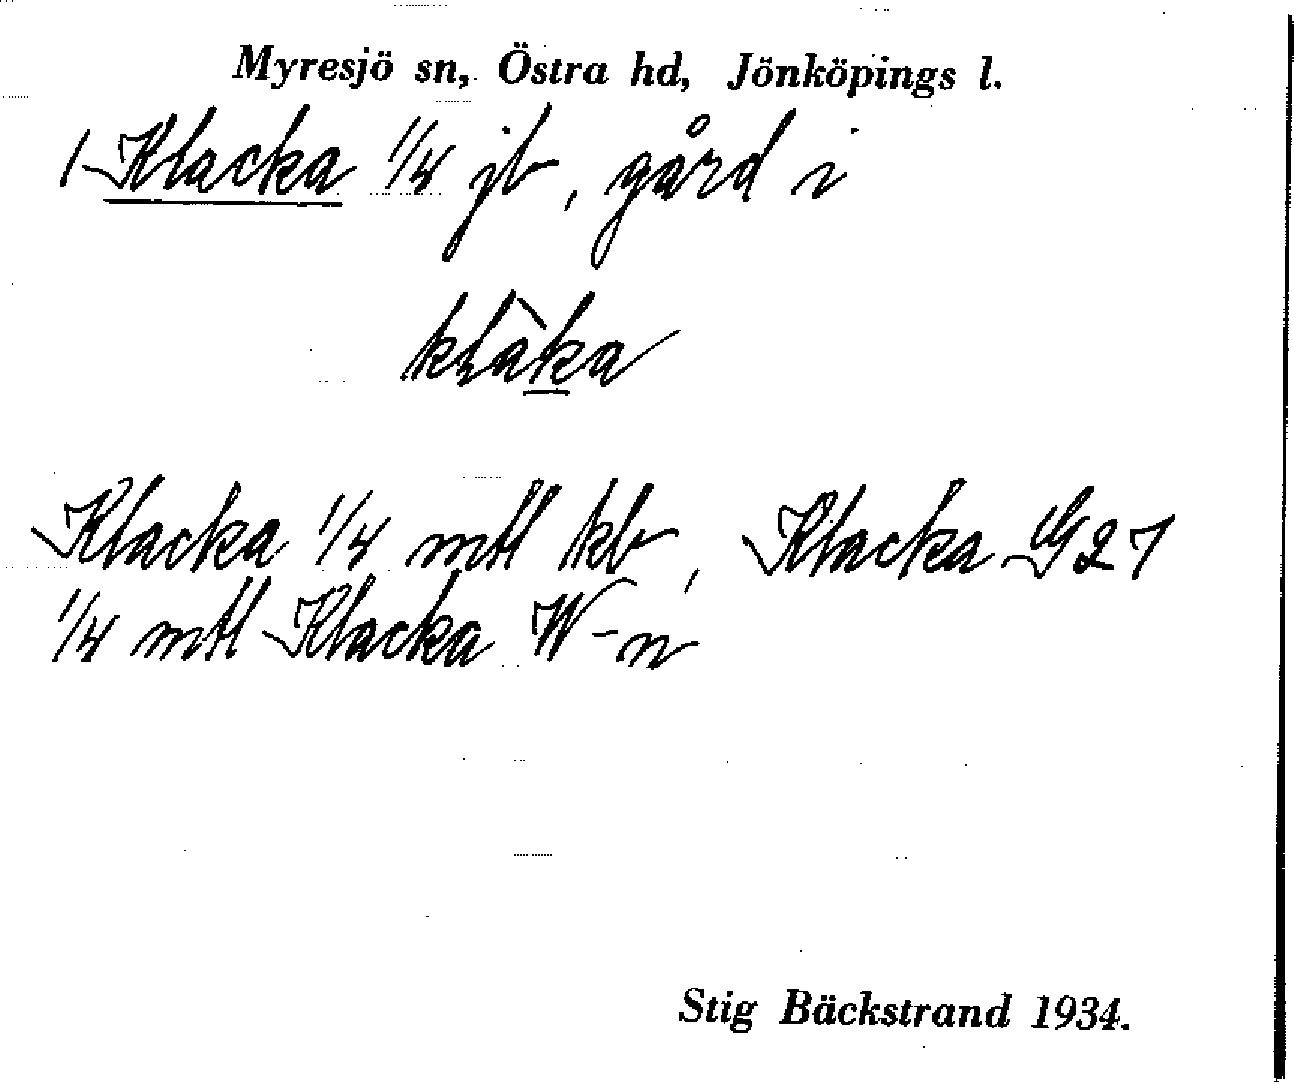 Myresjö sn, Östra hd, Jönköpings l.
1 Klacka 1/4 jb, gård i
klàka
Klacka 1/4 mtl kb, Klacka G27
1/4 mtl Klacka W-n
Stig Bäckstrand 1934.